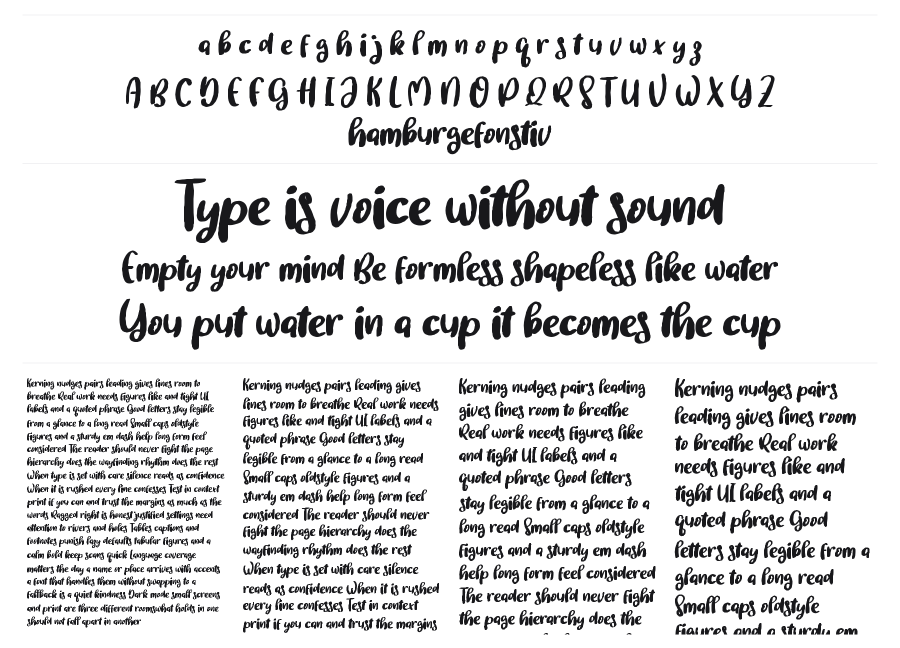 a b c d e f g h i j k l m n o p q r s t u v w x y z
A B C D E F G H I J K L M N O P Q R S T U V W X Y Z
hamburgefonstiv
Type is voice without sound
Empty your mind Be formless shapeless like water
You put water in a cup it becomes the cup
Kerning nudges pairs leading gives lines room to
breathe Real work needs figures like and tight UI
labels and a quoted phrase Good letters stay legible
from a glance to a long read Small caps oldstyle
figures and a sturdy em dash help long form feel
considered The reader should never fight the page
hierarchy does the wayfinding rhythm does the rest
When type is set with care silence reads as confidence
When it is rushed every line confesses Test in context
print if you can and trust the margins as much as the
words Ragged right is honest justified settings need
attention to rivers and holes Tables captions and
footnotes punish lazy defaults tabular figures and a
calm bold keep scans quick Language coverage
matters the day a name or place arrives with accents
a font that handles them without swapping to a
fallback is a quiet kindness Dark mode small screens
and print are three different roomswhat holds in one
should not fall apart in another
Kerning nudges pairs leading gives
lines room to breathe Real work needs
figures like and tight UI labels and a
quoted phrase Good letters stay
legible from a glance to a long read
Small caps oldstyle figures and a
sturdy em dash help long form feel
considered The reader should never
fight the page hierarchy does the
wayfinding rhythm does the rest
When type is set with care silence
reads as confidence When it is rushed
every line confesses Test in context
print if you can and trust the margins
Kerning nudges pairs leading
gives lines room to breathe
Real work needs figures like
and tight UI labels and a
quoted phrase Good letters
stay legible from a glance to a
long read Small caps oldstyle
figures and a sturdy em dash
help long form feel considered
The reader should never fight
the page hierarchy does the
Kerning nudges pairs
leading gives lines room
to breathe Real work
needs figures like and
tight UI labels and a
quoted phrase Good
letters stay legible from a
glance to a long read
Small caps oldstyle
figures and a sturdy em